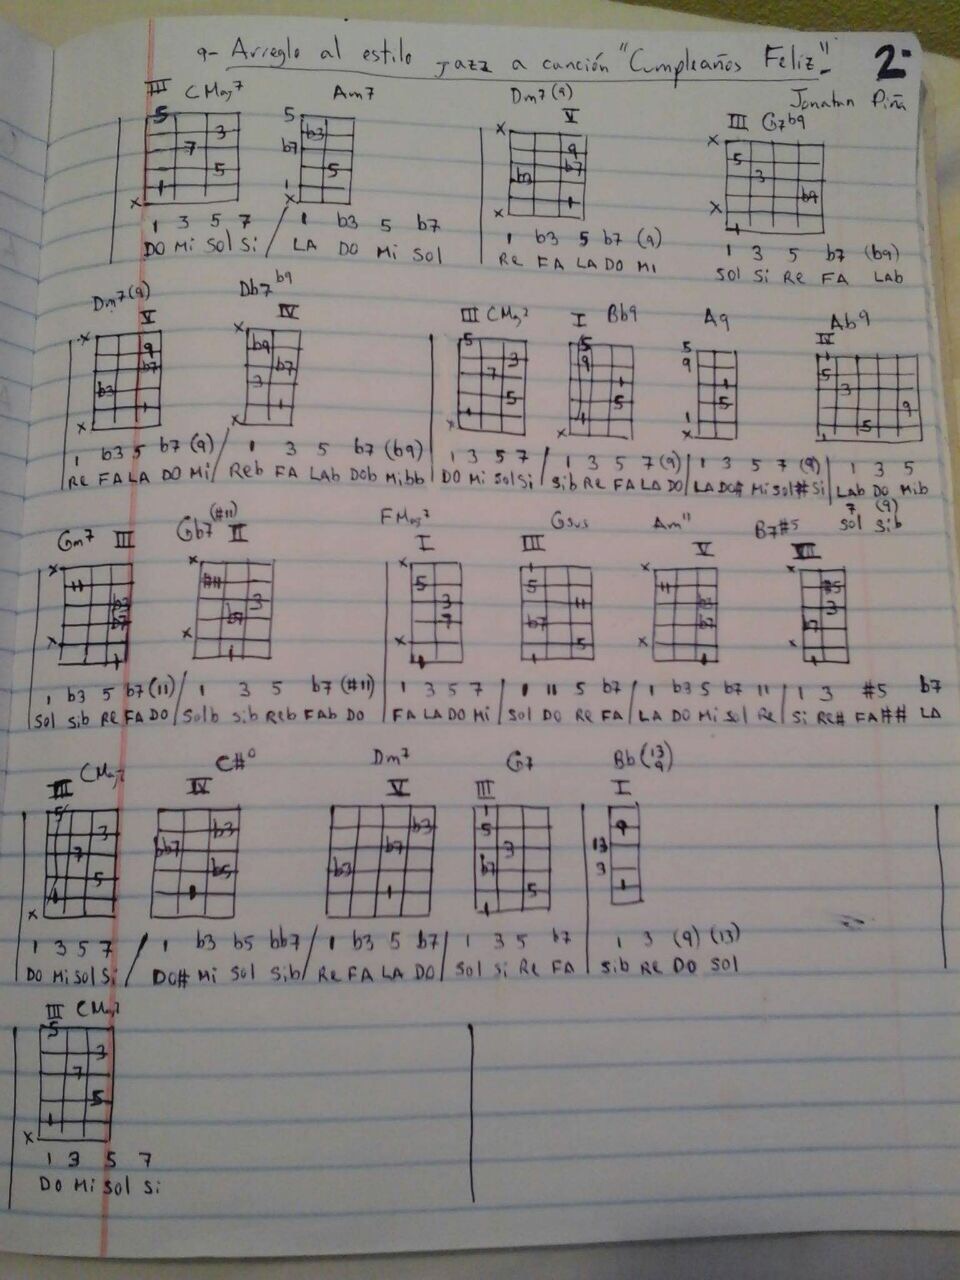 9- Arreglo al estilo jazz a canción "Cumpleaños Feliz"- 2-
Jonatan Piña
III CMaj7 Am7 Dm7(9) V III G7b9
5 3 7 5 1 x
5 b3 b7 5 1 x
x 9 b7 b3 1 x
x 5 3 b9 x 1
1 3 5 7 / 1 b3 5 b7 1 b3 5 b7 (9) 1 3 5 b7 (b9)
DO Mi Sol Si / LA DO Mi Sol Re FA LA DO Mi Sol Si Re FA LAb
Dm7(9) V Db7b9 IV III CMaj7 I Bb9 A9 Ab9 IV
x 9 b7 b3 1 x
x b9 b7 3 1 x
5 3 7 5 1 x
5 9 1 5 1 x
5 9 1 5 1 x
1 5 3 9 5 1
1 b3 5 b7 (9) / 1 3 5 b7 (b9) 1 3 5 7 / 1 3 5 7 (9) / 1 3 5 7 (9) / 1 3 5
Re FA LA DO Mi / Reb FA Lab Dob Mibb DO Mi Sol Si / Sib Re FA LA DO / LA DO# Mi Sol# Si / Lab DO Mib
7 (9)
Sol Sib
Gm7 III Gb7(#11) II FMaj7 I Gsus III Am11 V B7#5 VII
x 11 b3 b7 x 1
x #11 3 b7 x 1
x 5 3 7 x 1
1 5 11 b7 5 1
x 11 b3 b7 x 1
x #5 3 b7 x 1
1 b3 5 b7 (11) / 1 3 5 b7 (#11) 1 3 5 7 / 1 11 5 b7 / 1 b3 5 b7 11 / 1 3 #5 b7
Sol Sib Re FA DO / Solb Sib Reb FAb DO FA LA DO Mi / Sol DO Re FA / LA DO Mi Sol Re / Si Re# FA## LA
III CMaj7 C#° IV Dm7 V G7 III Bb(13 9) I
5 3 7 5 1 x
b3 bb7 b5 1
b3 b7 b3 1
1 5 3 b7 5 1
9 13 3 1
1 3 5 7 / 1 b3 b5 bb7 / 1 b3 5 b7 / 1 3 5 b7 1 3 (9) (13)
DO Mi Sol Si / DO# Mi Sol Sib / Re FA LA DO / Sol Si Re FA Sib Re DO Sol
III CMaj7
5 3 7 5 1 x
1 3 5 7
DO Mi Sol Si